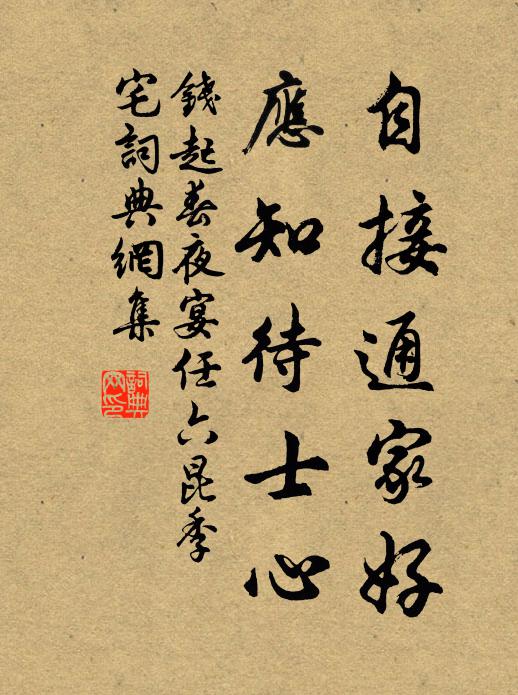 自接通家好
應知待士心
錢起春夜宴任六昆季
宅詞典網集
詞典網印